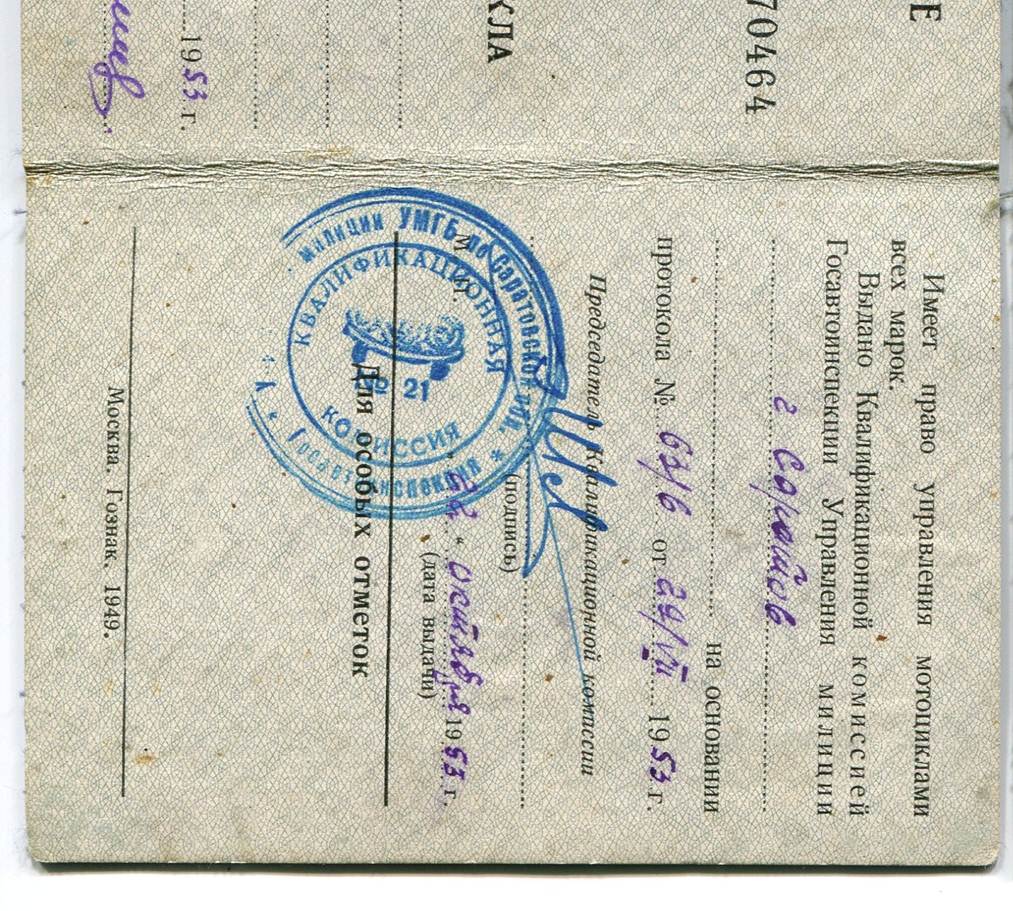 Е
70464
КЛА
1953 г.
Имеет право управления мотоциклами
всех марок.
Выдано Квалификационной комиссией
Госавтоинспекции Управления милиции
г Саратов
на основании
протокола № 67/6 от 29/VII 1953 г.
Председатель Квалификационной комиссии
(подпись)
М
октября 1953 г.
(дата выдачи)
милиции УМГБ по Саратовской обл.
КВАЛИФИКАЦИОННАЯ
№ 21
КОМИССИЯ
Для особых отметок
Москва. Гознак. 1949.